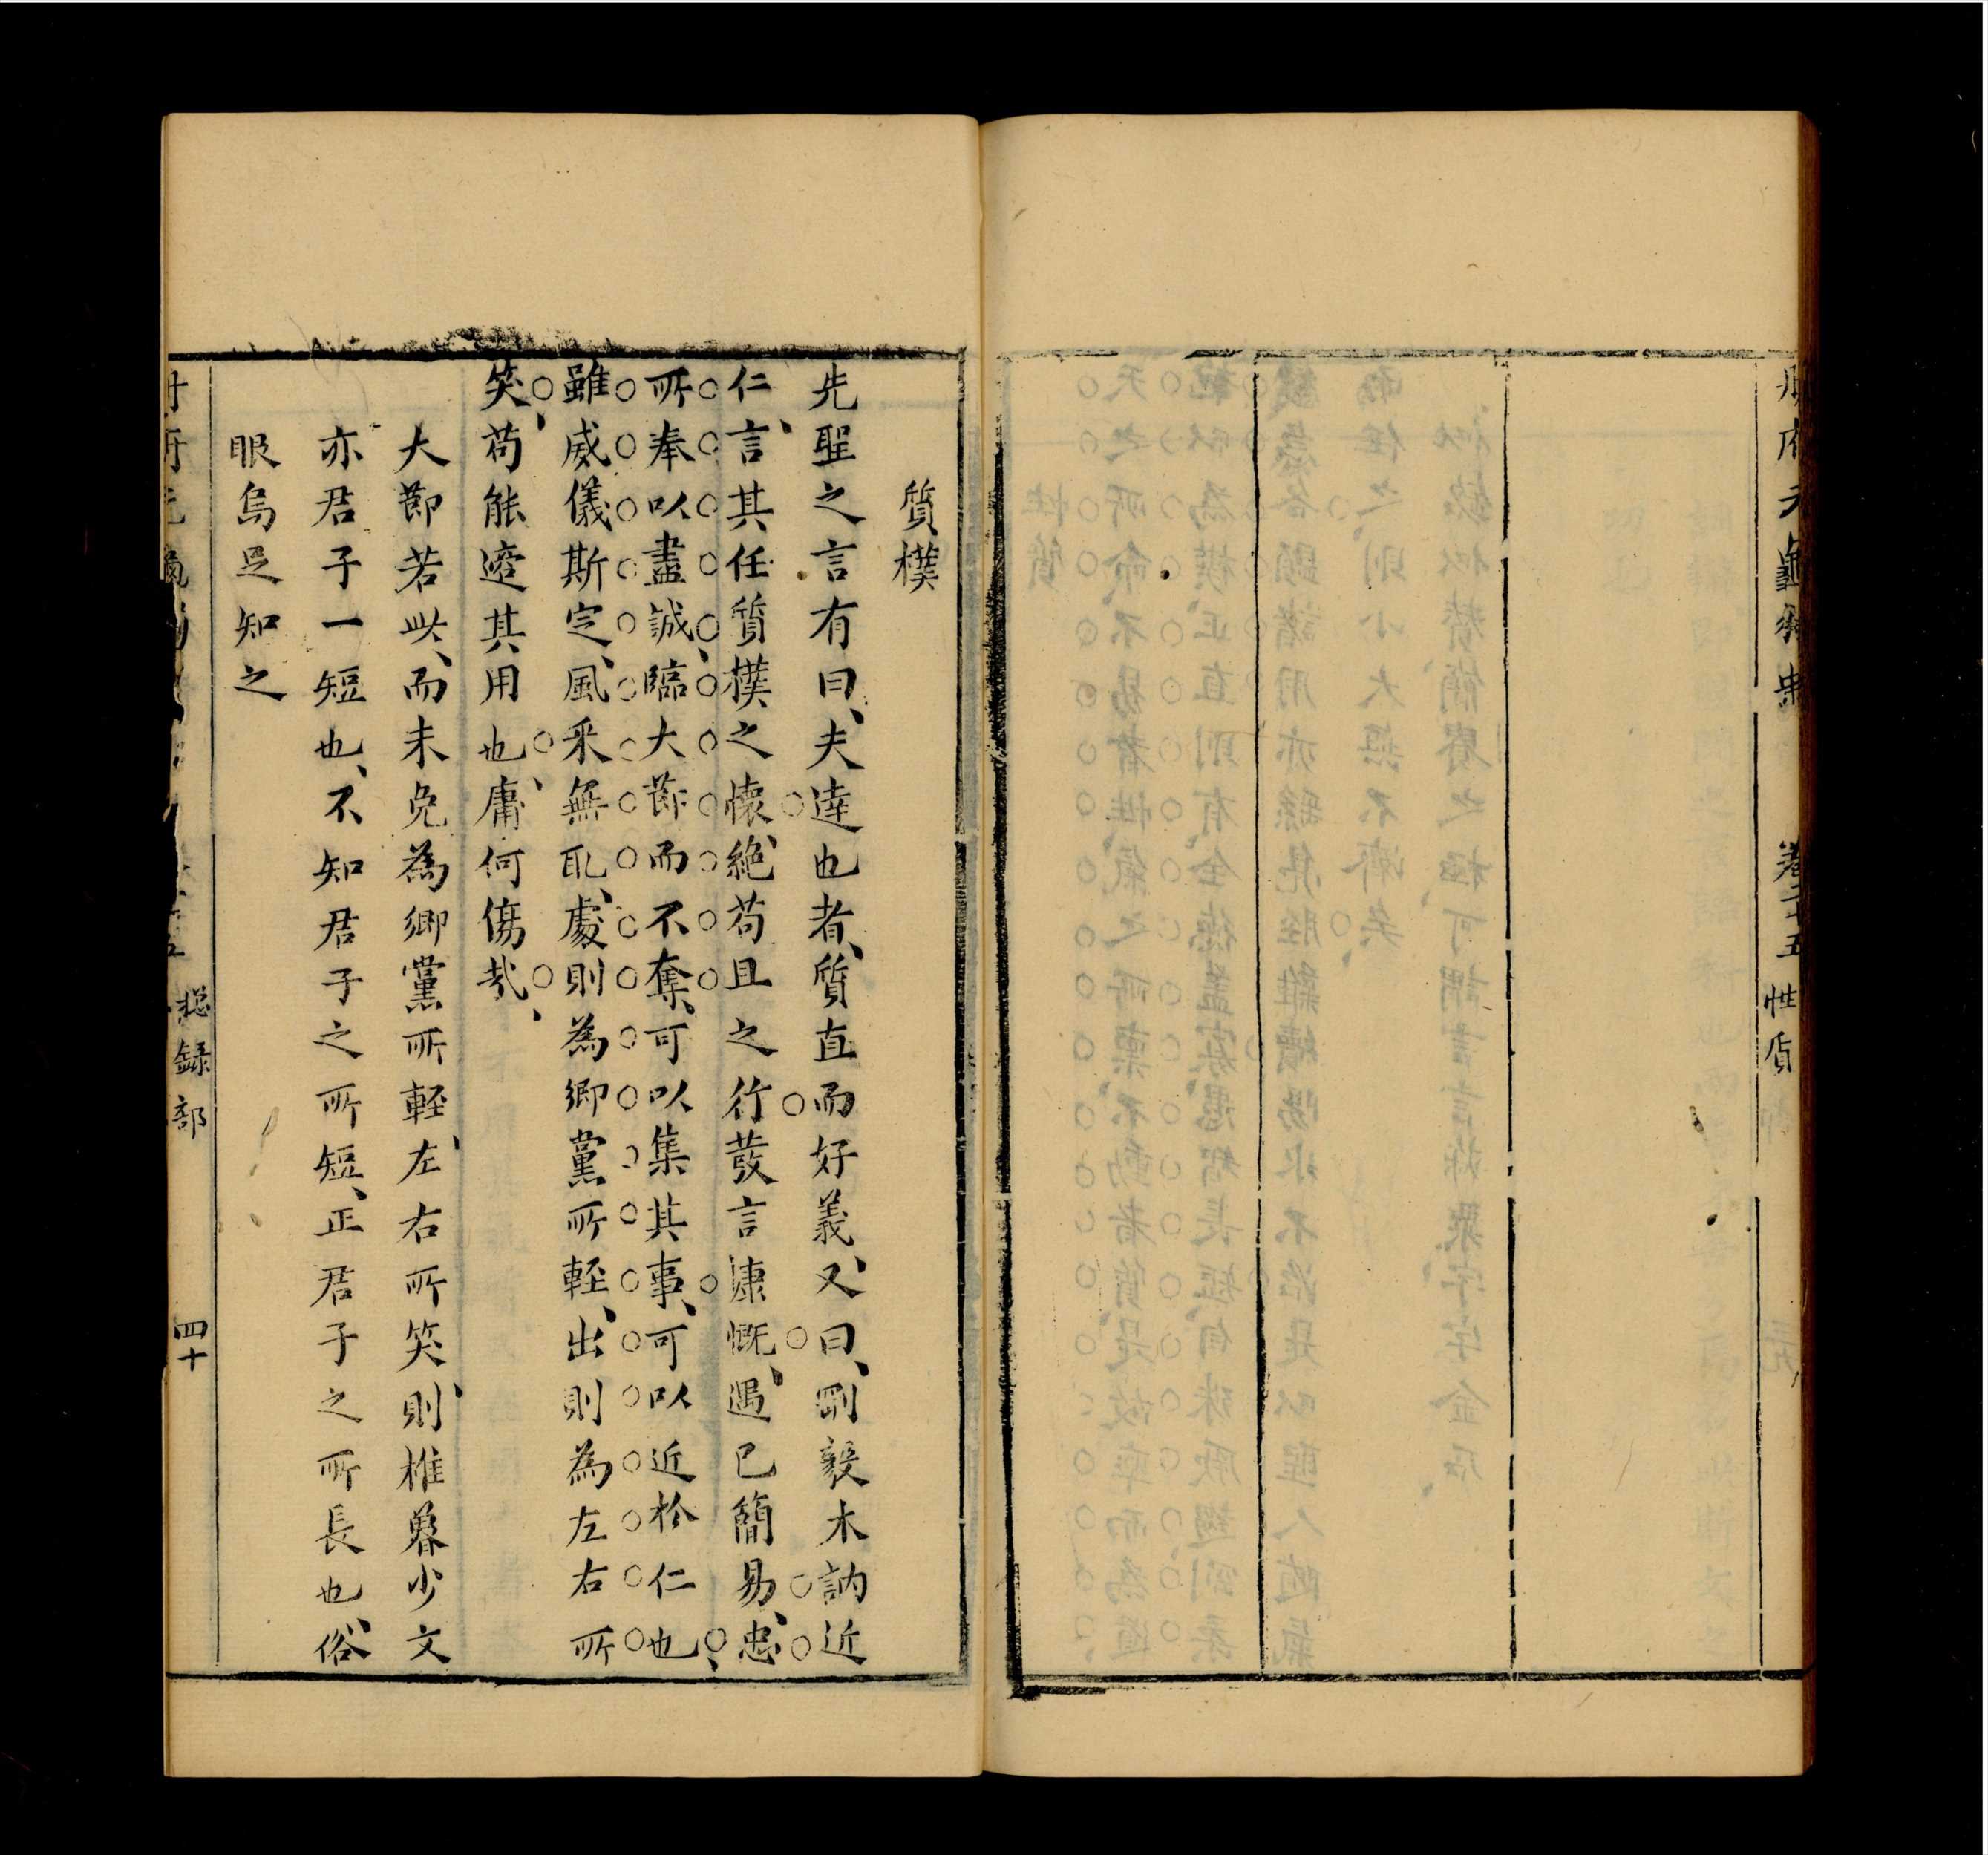 卷二十五 性質
質樸
先聖之言有曰、夫達也者、質直而好義、又曰、剛毅木訥近
仁、言其任質樸之懷、絕苟且之行、發言慷慨、遇已簡易、忠
所奉以盡誠、臨大節而不奪、可以集其事、可以近於仁也、
雖威儀斯定、風采無取、處則為鄉黨所輕、出則為左右所
笑、苟能適其用也、庸何傷哉、
大節若此、而未免為鄉黨所輕、左右所笑、則椎魯少文
亦君子一短也、不知君子之所短、正君子之所長也、俗
眼烏足知之
総錄部 四十